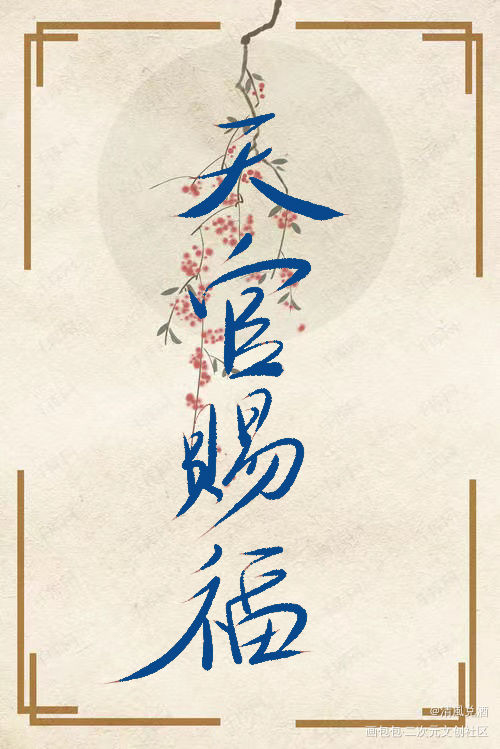 天官賜福
@清風兑酒
画包包·二次元文创社区